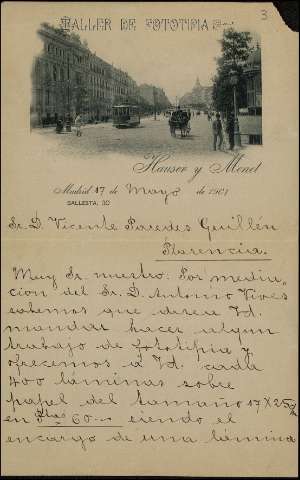 3
TALLER DE FOTOTIPIA
Hauser y Menet
Madrid 17 de Mayo de 1901
BALLESTA, 30
Sr. D. Vicente Paredes Guillén
Plasencia.
Muy Sr. nuestro: Por media-
cion del Sr. D. Antonio Vives
sabemos que desea Vd.
mandar hacer algun
trabajo de fototipia, y
ofrecemos á Vd. cada
400 láminas sobre
papel del tamaño 17 X 25
en Ptas 60 siendo el
encargo de una lámina